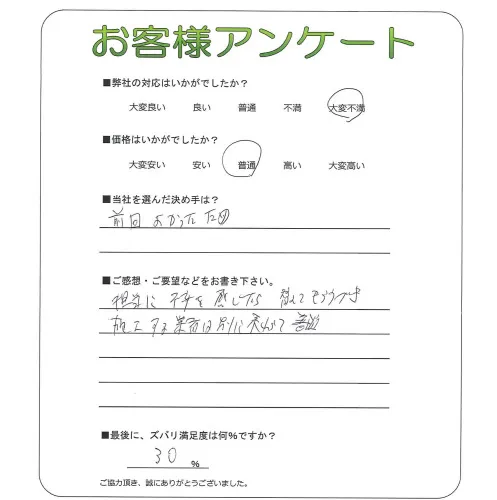 お客様アンケート
■弊社の対応はいかがでしたか？
大変良い 良い 普通 不満 大変不満
■価格はいかがでしたか？
大変安い 安い 普通 高い 大変高い
■当社を選んだ決め手は？
前回 よかった ため
■ご感想・ご要望などをお書き下さい。
担当に 不安を 感じたら
施工する 業者は 別に
■最後に、ズバリ満足度は何%ですか？
30 %
ご協力頂き、誠にありがとうございました。